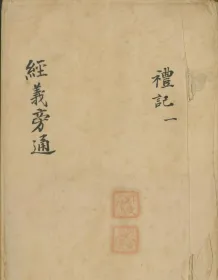 禮記一
經義旁通